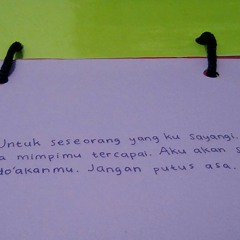 Untuk seseorang yang ku sayangi.
mimpimu tercapai. Aku akan
do'akanmu. Jangan putus asa.